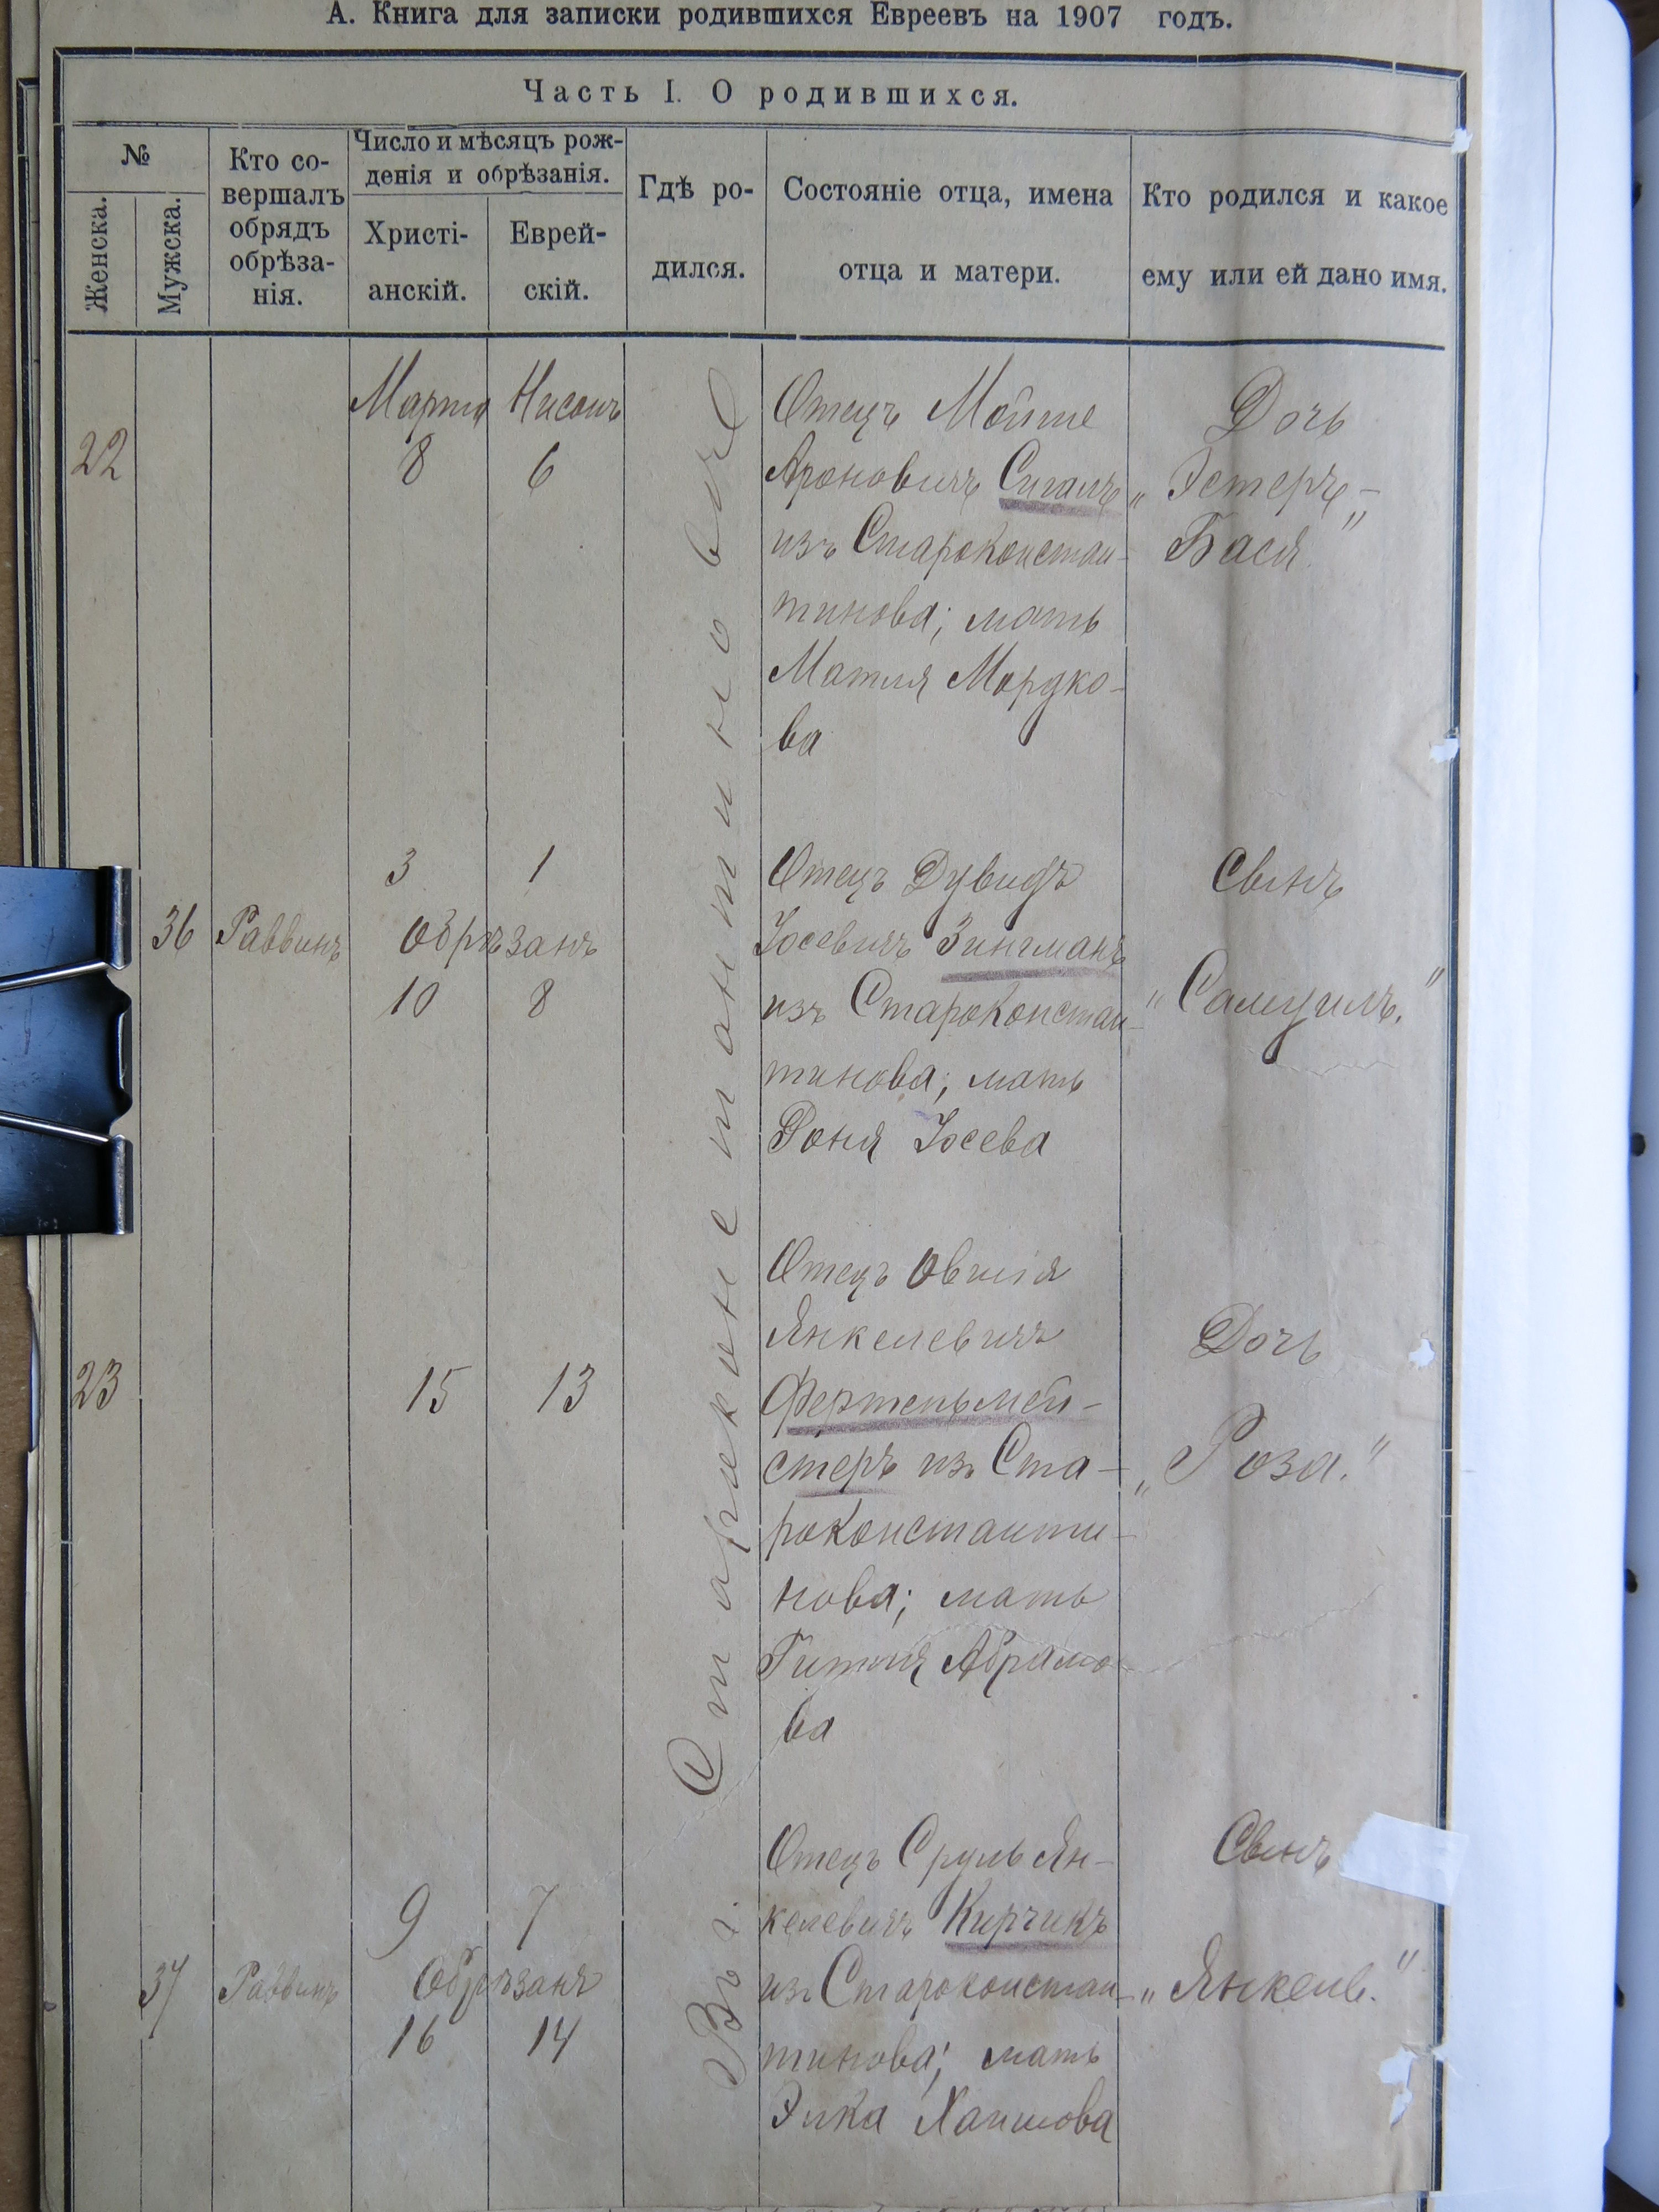 А. Книга для записки родившихся Евреевъ на 1907 годъ.
Часть I. О родившихся.
№
Женска.
Мужска.
Кто со-
вершалъ
обрядъ
обрѣза-
нія.
Число и мѣсяцъ рож-
денія и обрѣзанія.
Христі-
анскій.
Еврей-
скій.
Гдѣ ро-
дился.
Состояніе отца, имена
отца и матери.
Кто родился и какое
ему или ей дано имя.
Въ г. Староконстантиновѣ
22
Марта Нисонъ
8 6
Отецъ Мойше
Ароновичъ Сигалъ
изъ Староконстан-
тинова; мать
Матля Мордко-
ва
Дочь
„Эстеръ-
Бася"
36 Раввинъ
3 1
Обрѣзанъ
10 8
Отецъ Дувидъ
Іосевичъ Зингманъ
изъ Староконстан-
тинова; мать
Роня Іосева
Сынъ
„Самуилъ."
23
15 13
Отецъ Овшія
Янкелевичъ
Фертельмей-
стеръ изъ Ста-
роконстанти-
нова; мать
Гитля Абрамо-
ва
Дочь
„Роза."
37 Раввинъ
9 7
Обрѣзанъ
16 14
Отецъ Сруль Ян-
келевичъ Кирчикъ
изъ Староконстан-
тинова; мать
Элка Хаимова
Сынъ
„Янкель."